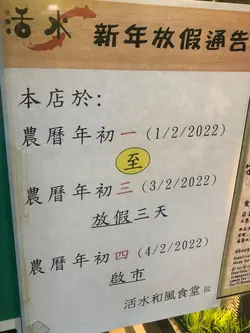 活水 新年放假通告
本店於:
農曆年初一 (1/2/2022)
至
農曆年初三 (3/2/2022)
放假三天
農曆年初四 (4/2/2022)
啟市
活水和風食堂 啟